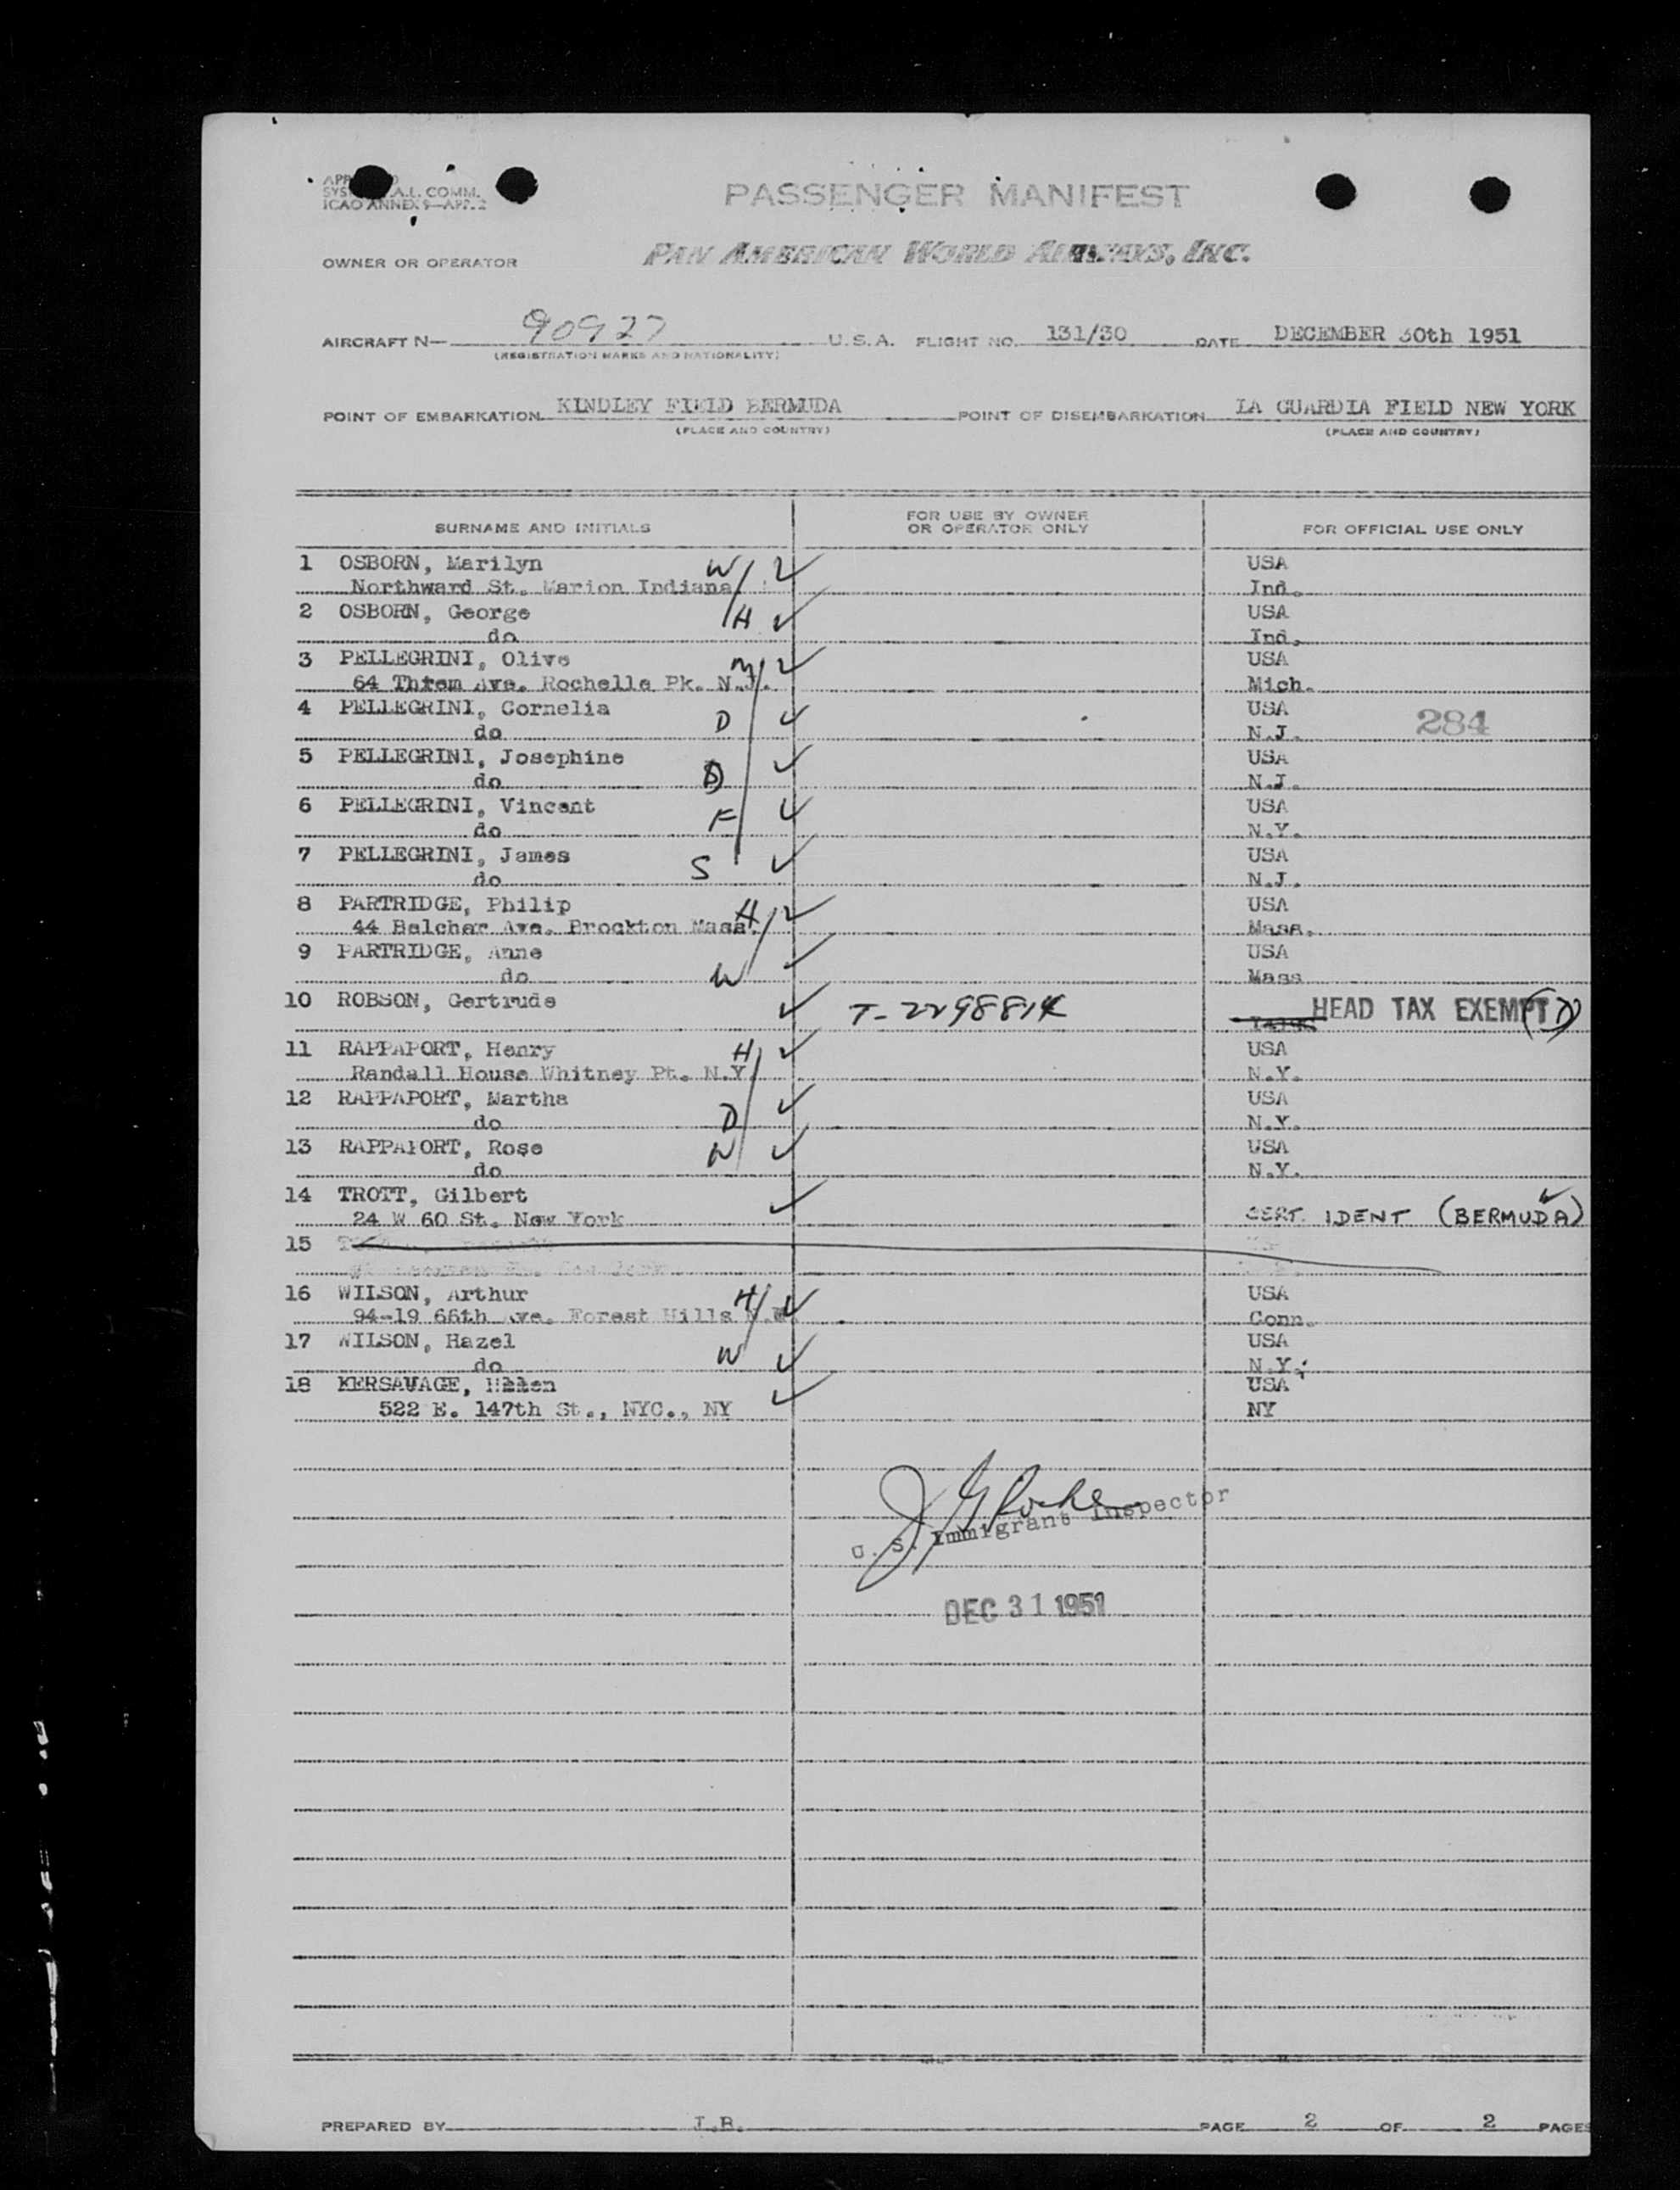 SYS A.I. COMM.
ICAO ANNEX 9—APP. 2
PASSENGER MANIFEST
OWNER OR OPERATOR PAN AMERICAN WORLD AIRWAYS, INC.
AIRCRAFT N— 90927 U.S.A. FLIGHT NO. 131/30 DATE DECEMBER 30th 1951
(REGISTRATION MARKS AND NATIONALITY)
POINT OF EMBARKATION KINDLEY FIELD BERMUDA POINT OF DISEMBARKATION LA GUARDIA FIELD NEW YORK
(PLACE AND COUNTRY) (PLACE AND COUNTRY)
SURNAME AND INITIALS FOR USE BY OWNER OR OPERATOR ONLY FOR OFFICIAL USE ONLY
1 OSBORN, Marilyn W USA
Northward St. Marion Indiana Ind.
2 OSBORN, George H USA
do Ind.
3 PELLEGRINI, Olive M USA
64 Ave. Rochelle Pk. N.J. Mich.
4 PELLEGRINI, Cornelia D USA
do N.J. 284
5 PELLEGRINI, Josephine D USA
do N.J.
6 PELLEGRINI, Vincent F USA
do N.Y.
7 PELLEGRINI, James S USA
do N.J.
8 PARTRIDGE, Philip H USA
44 Belcher Ave. Brockton Mass. Mass.
9 PARTRIDGE, Anne W USA
do Mass
10 ROBSON, Gertrude T-2298814 HEAD TAX EXEMPT
11 RAPPAPORT, Henry H USA
Randall House Whitney Pt. N.Y. N.Y.
12 RAPPAPORT, Martha D USA
do N.Y.
13 RAPPAPORT, Rose W USA
do N.Y.
14 TROTT, Gilbert
24 W 60 St. New York CERT. IDENT (BERMUDA)
15
16 WILSON, Arthur H USA
94-19 66th Ave. Forest Hills Conn.
17 WILSON, Hazel W USA
do N.Y.
18 KERSAVAGE, Helen USA
522 E. 147th St., NYC., NY NY
U. S. Immigrant Inspector
DEC 31 1951
PREPARED BY J.B. PAGE 2 OF 2 PAGES